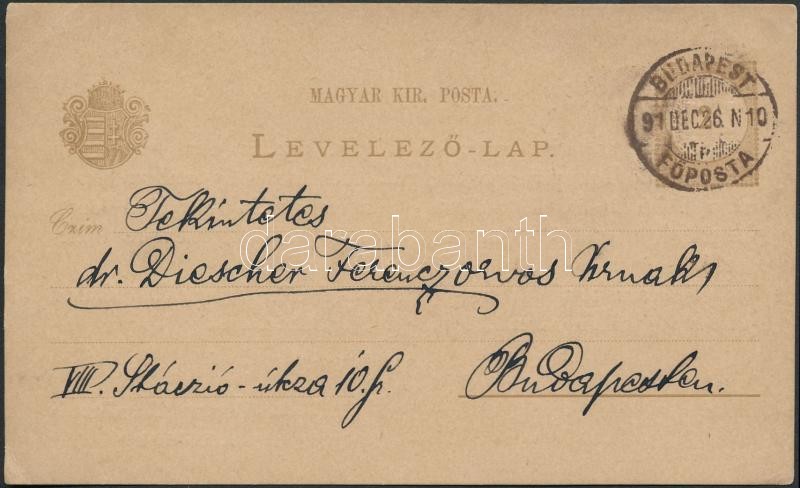 MAGYAR KIR. POSTA.
LEVELEZŐ-LAP.
BUDAPEST
91 DEC. 26. N 10
FŐPOSTA
Czim Tekintetes
dr. Diescher Ferencz orvos Urnak
darabanth
VIII. Stáczió-útcza 10. fr.
Budapesten.